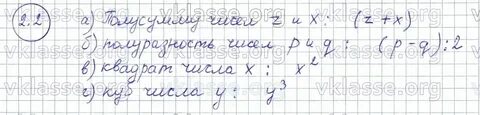 2.2 а) Полусумму чисел z и x : (z+x)
б) полуразность чисел p и q : (p-q):2
в) квадрат числа x : x²
г) куб числа y : y³
vklasse.org vklasse.org vklasse.org
vklasse.org vklasse.org vklasse.org